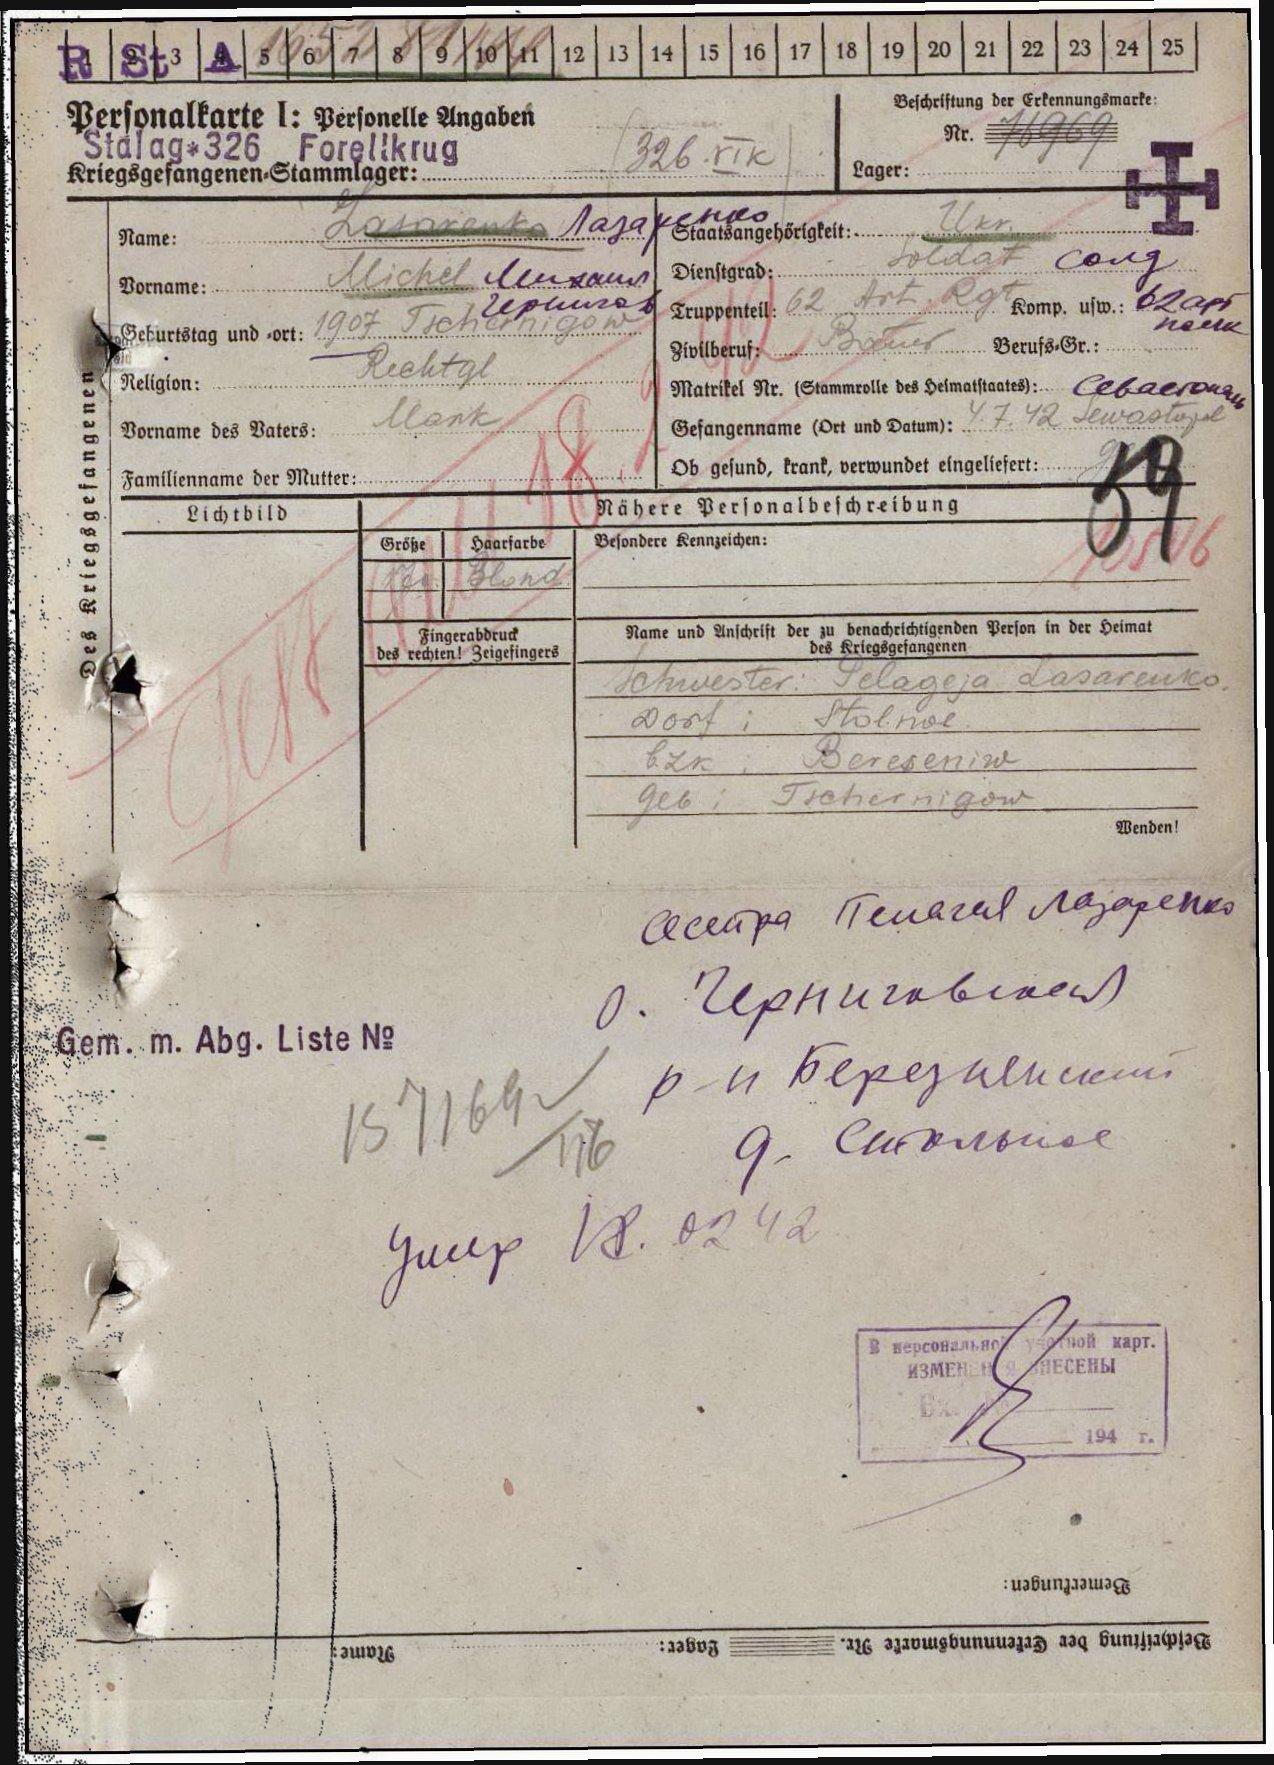 R St A 5 6 7 8 9 10 11 12 13 14 15 16 17 18 19 20 21 22 23 24 25
Personalkarte I: Personelle Angaben
Stalag 326 Forellkrug
Kriegsgefangenen-Stammlager: 326 VI K
Beschriftung der Erkennungsmarke:
Nr. 76969
Lager:
Des Kriegsgefangenen
Name: Lasarenko Лазаренко
Vorname: Michel Михаил
Чернигов
Geburtstag und -ort: 1907 Tschernigow
Religion: Rechtgl
Vorname des Vaters: Mark
Familienname der Mutter:
Staatsangehörigkeit: Ukr.
Dienstgrad: Soldat солд
Truppenteil: 62 Art Rgt Komp. usw.: 62 арт
полк
Zivilberuf: Bauer Berufs-Gr.:
Matrikel Nr. (Stammrolle des Heimatstaates): Севастополь
Gefangenname (Ort und Datum): 4.7.42 Sewastopol
Ob gesund, krank, verwundet eingeliefert:
59
Lichtbild
Nähere Personalbeschreibung
Größe Haarfarbe Besondere Kennzeichen:
Blond
Fingerabdruck
des rechten! Zeigefingers
Name und Anschrift der zu benachrichtigenden Person in der Heimat
des Kriegsgefangenen
Schwester: Pelageja Lasarenko.
Dorf: Stolnoe
Bzk: Bereseniw
Geb: Tschernigow
Wenden!
Сестра Пелагея Лазаренко
о. Черниговская
р-н Березненский
д. Стольное
Gem. m. Abg. Liste №
157169
116
Умер
42
В персональной учетной карт.
ИЗМЕНЕНИЯ ВНЕСЕНЫ
Вх.
194 г.
Bemerkungen:
Beschriftung der Erkennungsmarke Nr. Lager: Name: